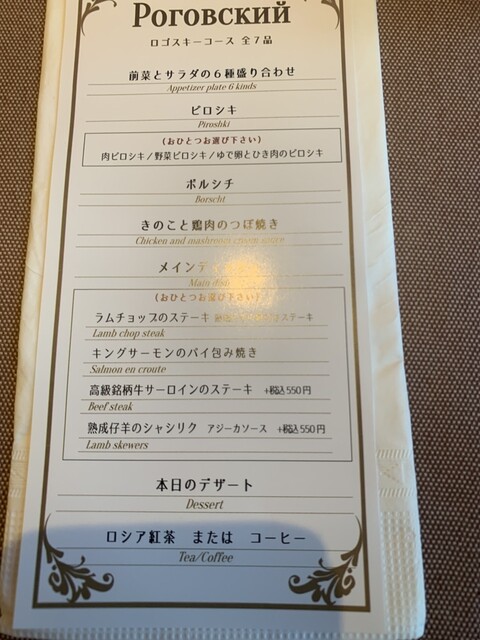 Роговский
ロゴスキーコース 全7品
前菜とサラダの6種盛り合わせ
Appetizer plate 6 kinds
ピロシキ
Piroshki
(おひとつお選び下さい)
肉ピロシキ/野菜ピロシキ/ゆで卵とひき肉のピロシキ
ボルシチ
Borscht
きのこと鶏肉のつぼ焼き
Chicken and mashroom cream sauce
メインディ
Main dish
(おひとつお選び下さい)
ラムチョップのステーキ ステーキ
Lamb chop steak
キングサーモンのパイ包み焼き
Salmon en croute
高級銘柄牛サーロインのステーキ +税込550円
Beef steak
熟成仔羊のシャシリク アジーカソース +税込550円
Lamb skewers
本日のデザート
Dessert
ロシア紅茶 または コーヒー
Tea/Coffee